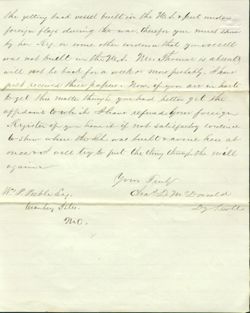 the getting back vessel built in the U.S. & put under
foreign flags during the war. therefor you must show
by her Reg. or some other evidence that your vessel
was not built in the U.S. Mr. Thomas is absent
will not be back for a week or more probably. I have
just received these papers. Now if you are in haste
to get this matter through you had better get the
affidavit to which I have refered your foreign
Register if you have it if not satisfactory evidence
to show where the Sch was built & owned here at
once and will try to put the thing through the mill
again
Yours Truly
McDonald
Dy Collr
Wm P. Esq.